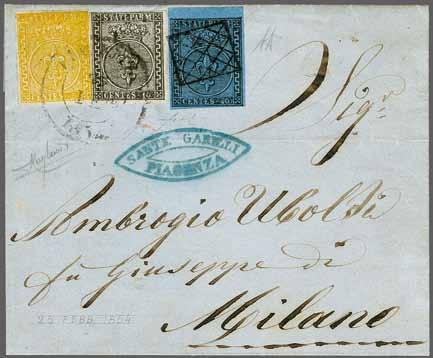 STATI PARM.
CENTES. 10
STATI PARM.
CENTES. 40
Sigr
SANTE GARILLI
PIACENZA
Ambrogio Uboldi
fu Giuseppe di
Milano
25 FEBB 1854